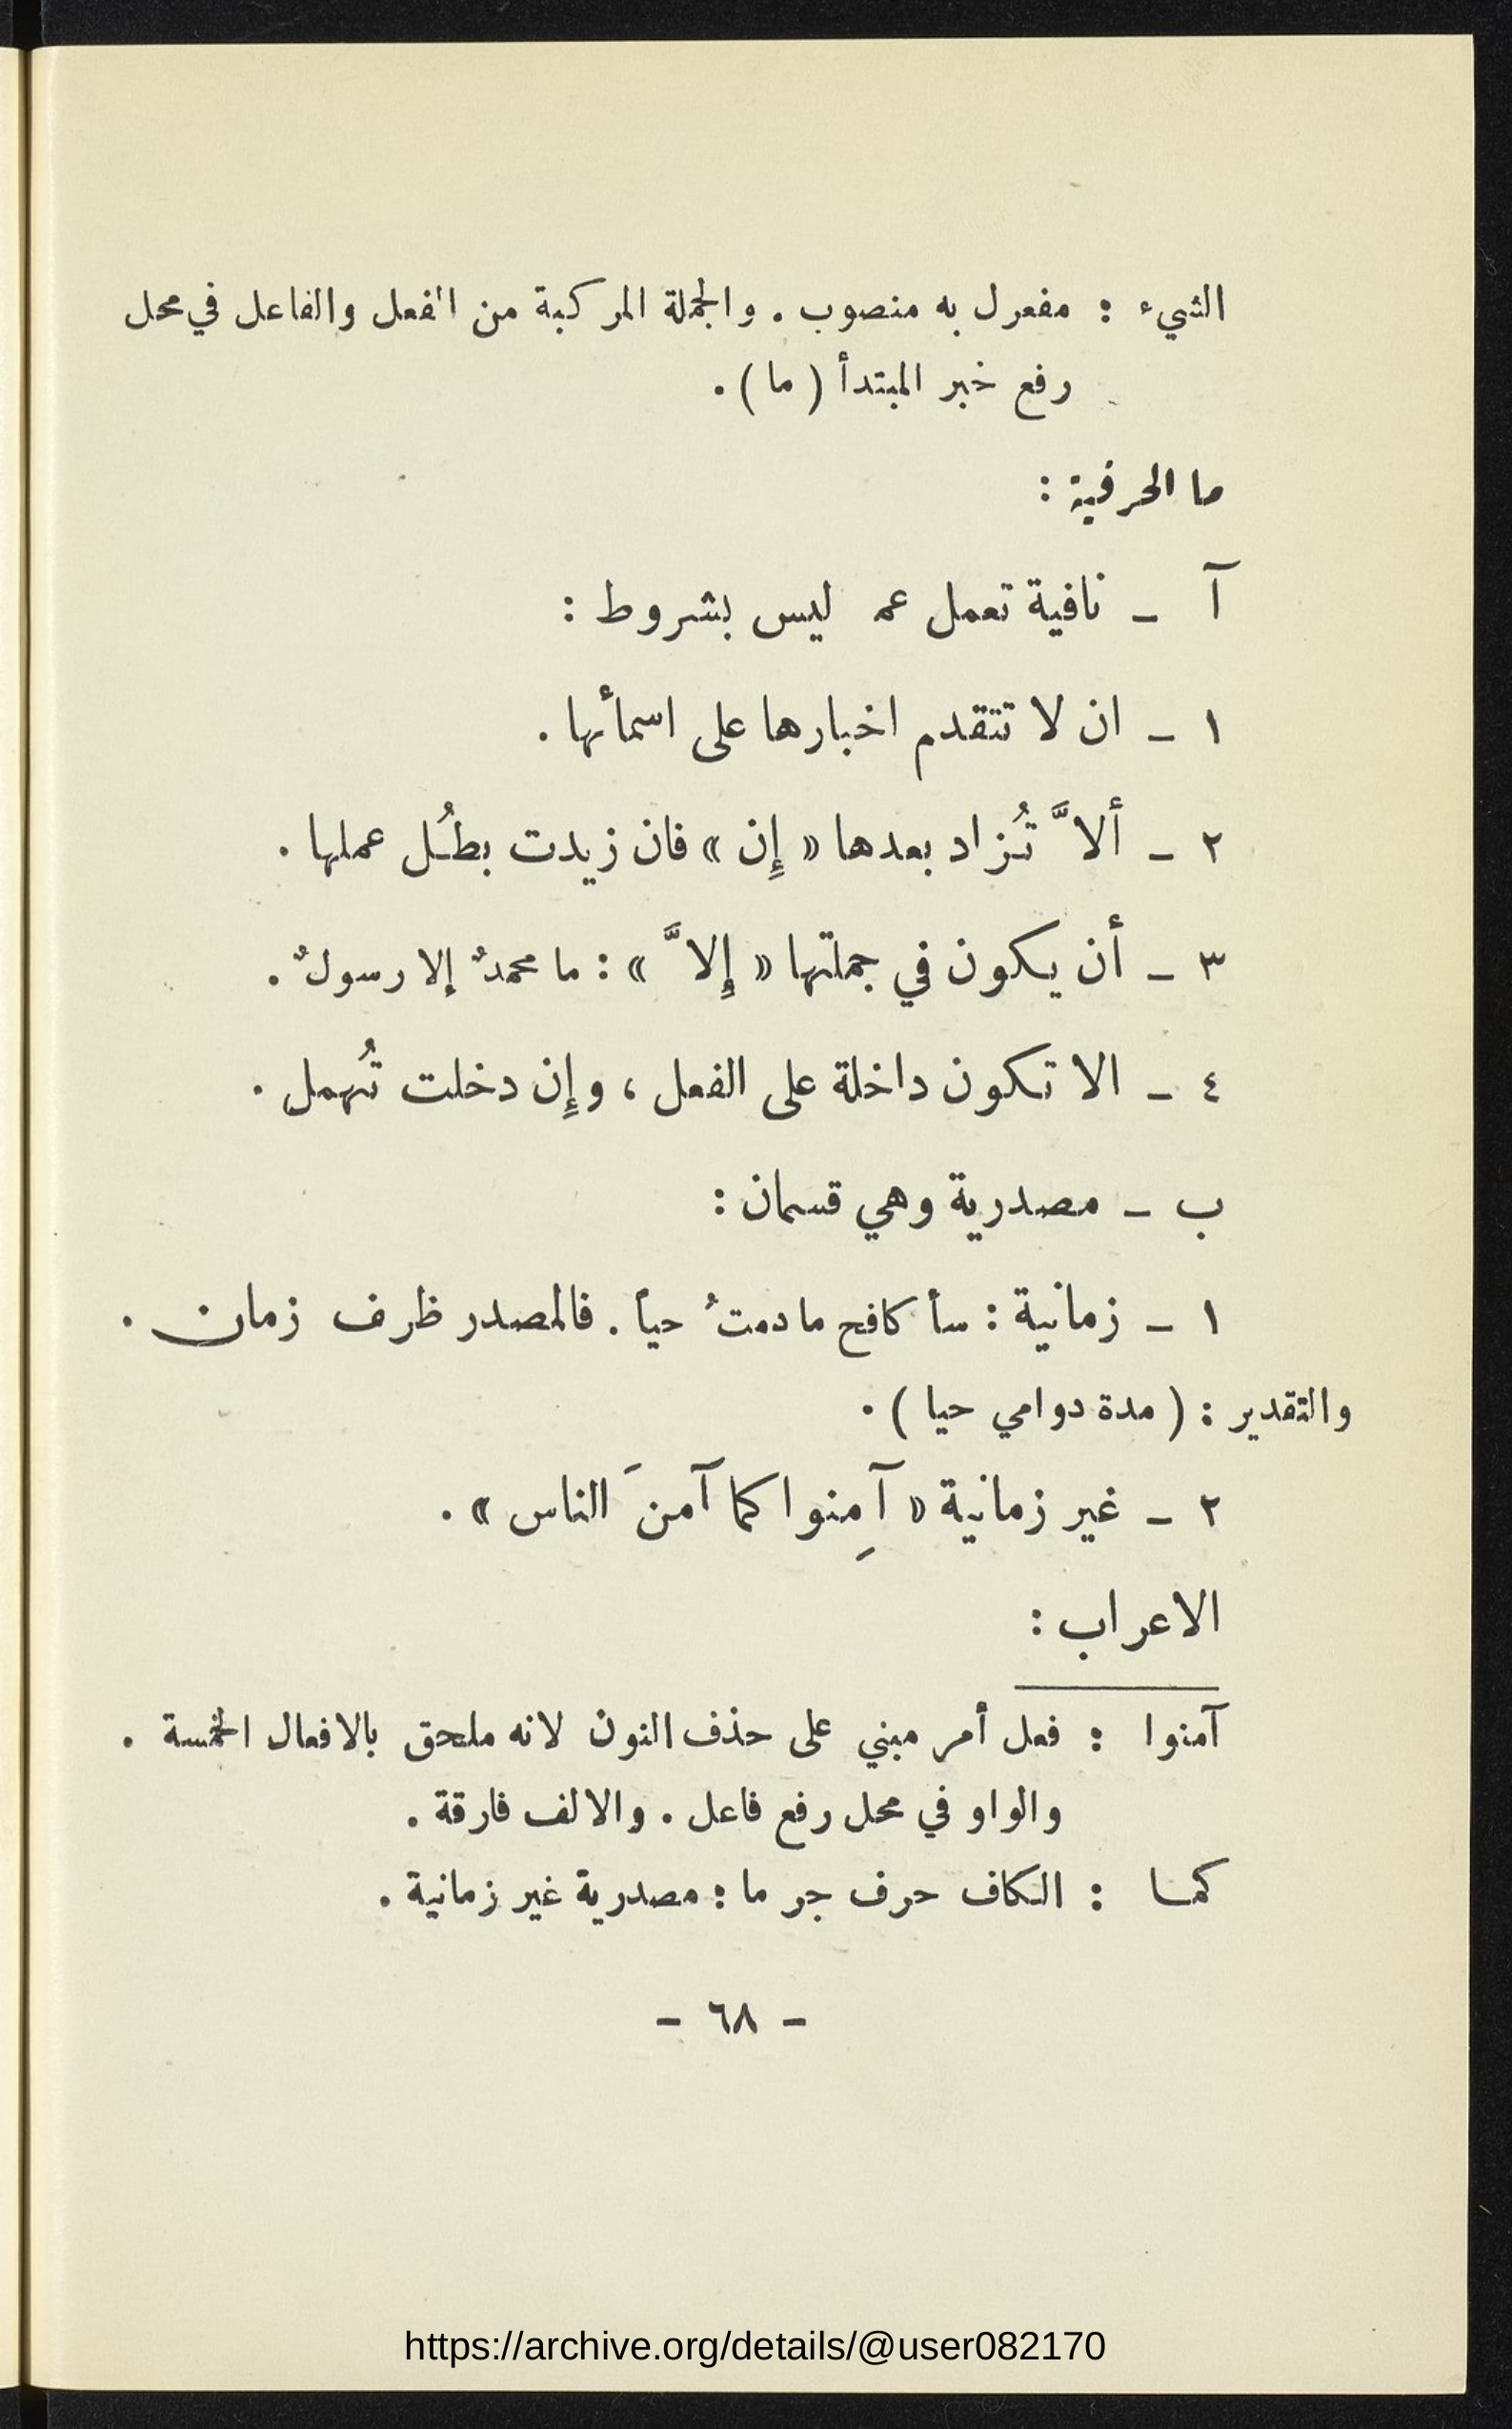 الشيء : مفعول به منصوب . والجملة المركبة من الفعل والفاعل في محل
رفع خبر المبتدأ ( ما ) .
ما الحرفية :
آ – نافية تعمل ليس بشروط :
١ – ان لا تتقدم اخبارها على اسمأئها .
٢ – ألاَّ تُزاد بعدها « إِن » فان زيدت بطُل عملها .
٣ – أن يكون في جملتها « إِلاَّ » : ما محمدٌ إلا رسولٌ .
٤ – الا تكون داخلة على الفعل ، وإِن دخلت تُهمل .
ب – مصدرية وهي قسمان :
١ – زمانية : سأكافح ما دمتُ حياً . فالمصدر ظرف زمان .
والتقدير : ( مدة دوامي حيا ) .
٢ – غير زمانية « آمِنوا كما آمنَ الناس » .
الاعراب :
آمنوا : فعل أمر مبني على حذف النون لانه ملحق بالافعال الخمسة .
والواو في محل رفع فاعل . والالف فارقة .
كما : الكاف حرف جر ما : مصدرية غير زمانية .
– ٦٨ –
https://archive.org/details/@user082170